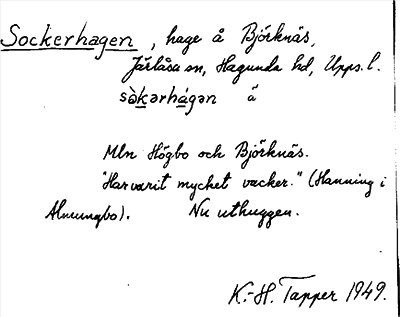 Sockerhagen, hage å Björknäs,
Järlåsa sn, Hagunda hd, Upps. l.
sòkərhágən ä
Mln Högbo och Björknäs.
"Har varit mycket vacker." (Hanning i
Almungbo). Nu uthuggen.
K.-H. Tapper 1949.